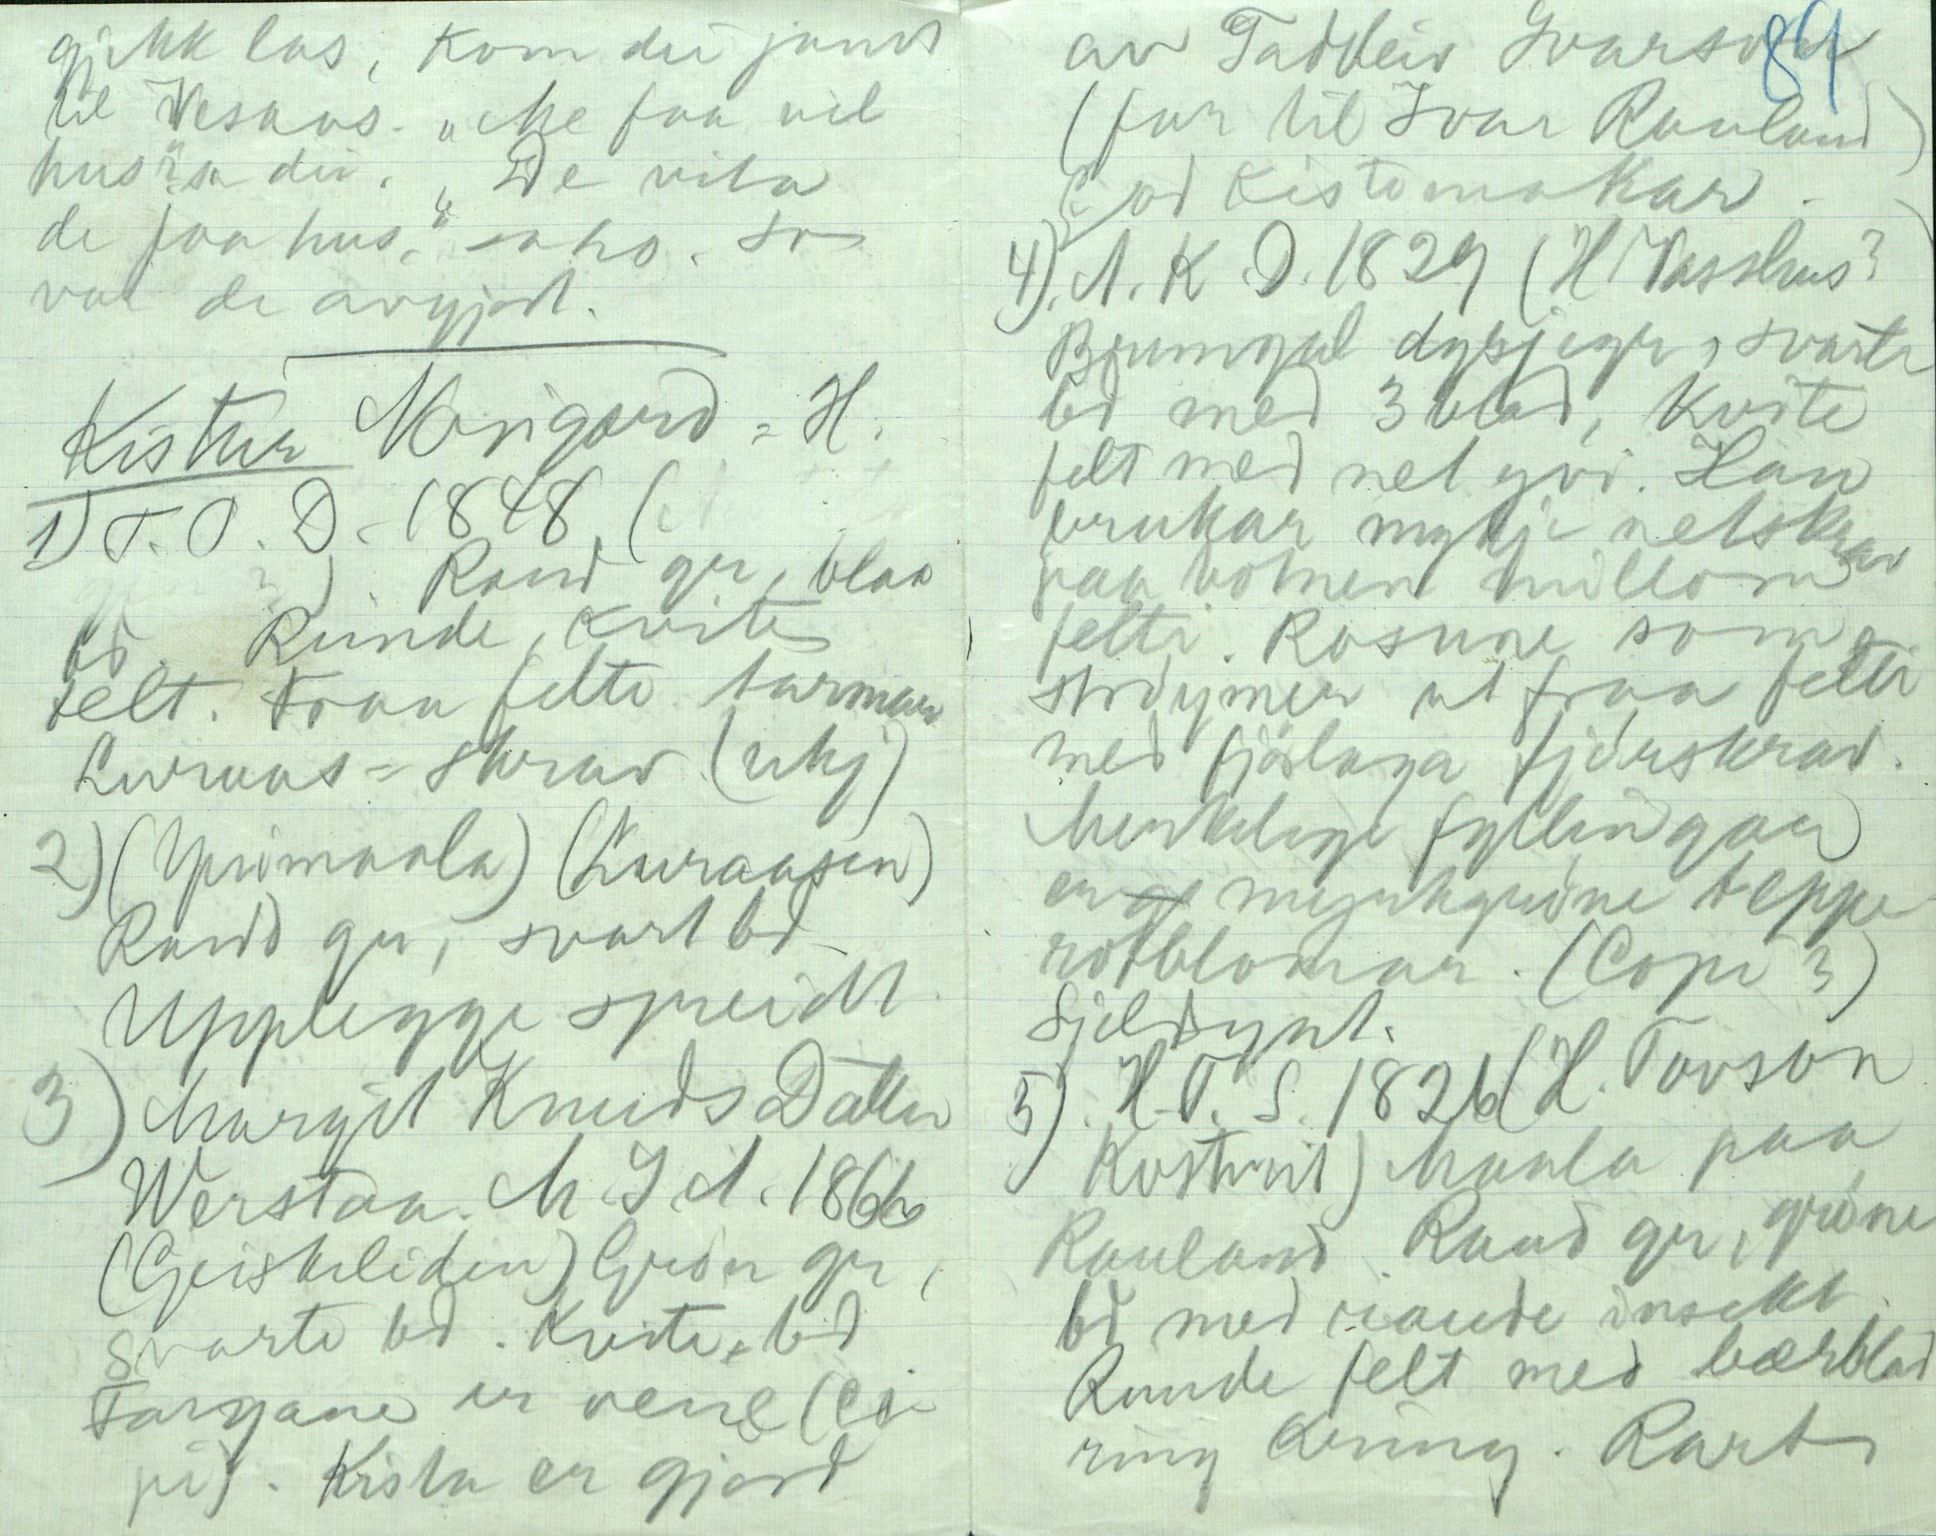 gjekk los, kom dei jamt
til Vesaas. "Me faa vel
hus" sa dei. "De vita
de faa hus," sa ho. So
var de avgjort.
Kistur Mogard = H.
1) T. O. D. 1848 (
). Raud gr, blaa
bd. Runde, kvite
felt. Fraa felte tarmar
Luraas = skrav (ukj)
2) (Yvimaala) (Luraasen)
Raud gr, svart bd
Upplegge spreidt
3) Margit Knuds Datter
Werstaa. M. I. A. 1866
(Geiskeliden) Grøn gr,
svarte bd. Kvite bd
Fargane er vene (co-
pi). Kista er gjord
89
av Tadleiv Ivarson
(far til Ivar Rauland)
God kistemakar.
4). A. K. D. 1829 (H. Vasshus?
Brumgul dypjegr, svarte
bd med 3 blad, kvite
felt med net yvi. Han
brukar mykje netskrav
paa botnen millom
felti. Rosune som
strøymer ut fraa felti
med fjølaga fjørskrav.
Merkelege fyllingar
er mørkgrøne teppe
rotblomar. (Copi 3)
Sjeldsynt.
5). H. T. S. 1826 (H. Tovson
Kostveit) Maala paa
Rauland. Raud gr, grøne
bd med raude insekt.
Runde felt med bærblad
ring kring. Rart